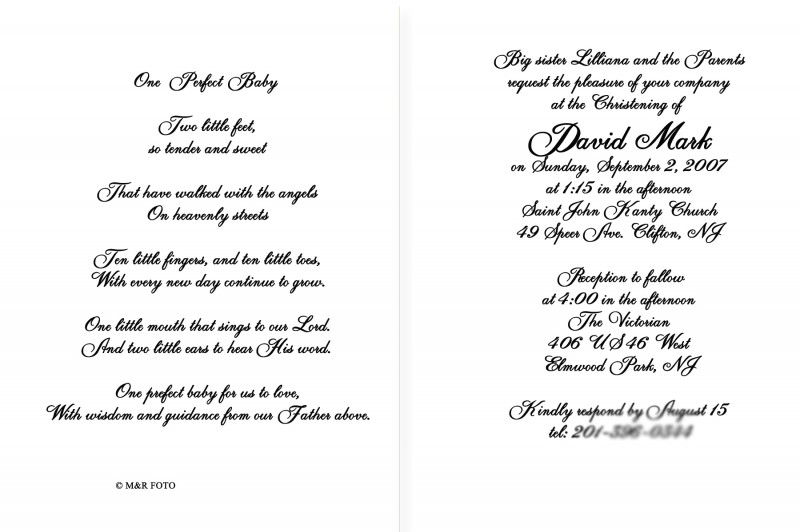 One Perfect Baby
Two little feet,
so tender and sweet
That have walked with the angels
On heavenly streets
Ten little fingers, and ten little toes,
With every new day continue to grow.
One little mouth that sings to our Lord.
And two little ears to hear His word.
One prefect baby for us to love,
With wisdom and guidance from our Father above.
© M&R FOTO
Big sister Lilliana and the Parents
request the pleasure of your company
at the Christening of
David Mark
on Sunday, September 2, 2007
at 1:15 in the afternoon
Saint John Kanty Church
49 Speer Ave. Clifton, NJ
Reception to fallow
at 4:00 in the afternoon
The Victorian
406 US 46 West
Elmwood Park, NJ
Kindly respond by August 15
tel: